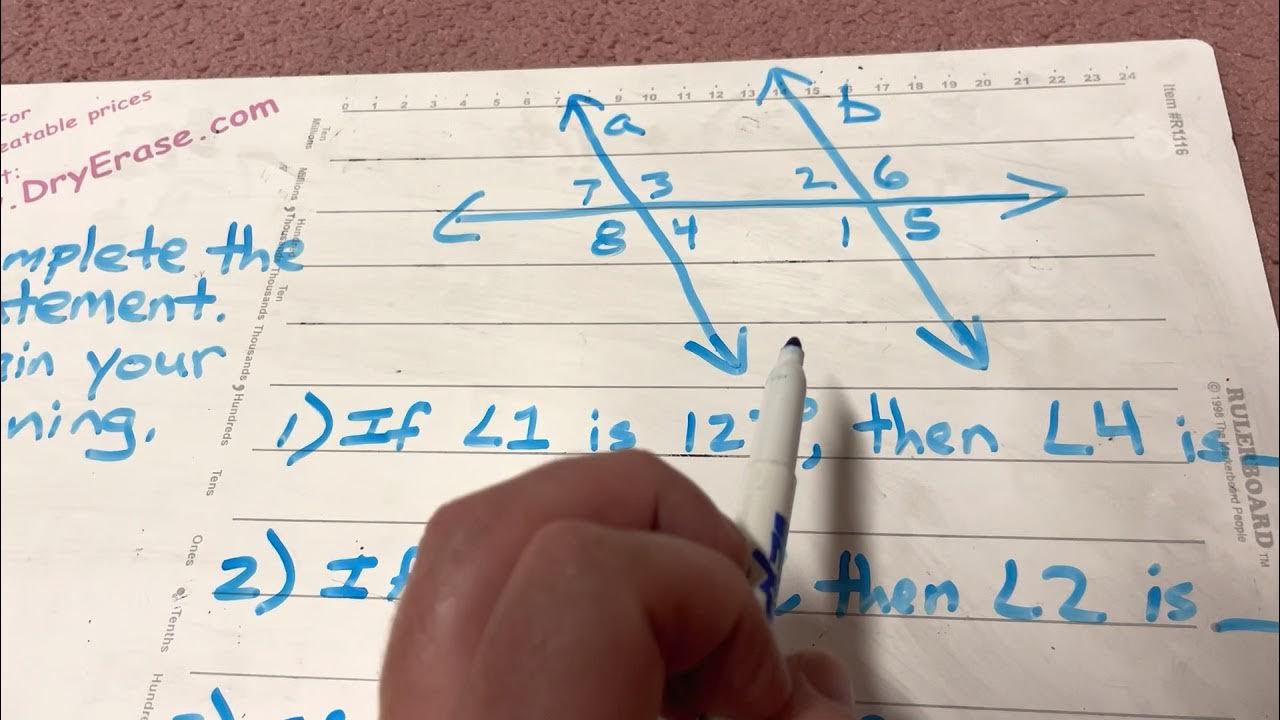 For
eatable prices
t:
.DryErase.com
0 1 2 3 4 5 6 7 9 10 11 12 13 14 15 17 18 19 20 21 22 23 24
Item #R1116
a
b
7 3 2 6
8 4 1 5
mplete the
tement.
in your
ning.
1) If ∠1 is 12°, then ∠4 is
2) If , then ∠2 is
Ten Millions
Millions,
Hundred Thousands
Ten Thousands
Thousands,
Hundreds
Tens
Ones
Tenths
Hundr
RULERBOARD™
©1998 The Markerboard People